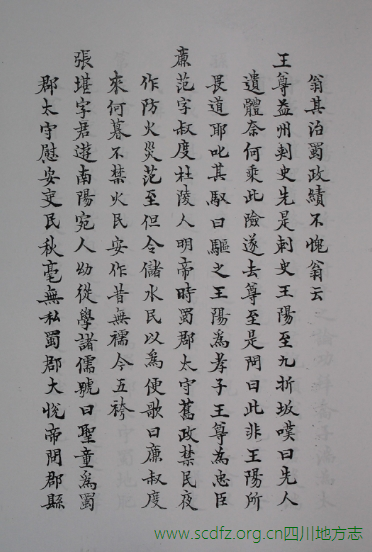 翁其治蜀政績不愧翁云
王尊益州刺史先是刺史王陽至九折坂嘆曰先人
遺體奈何乘此險遂去尊至是問曰此非王陽所
畏道耶叱其馭曰驅之王陽為孝子王尊為忠臣
廉范字叔度杜陵人明帝時蜀郡太守舊政禁民夜
作防火災范至但令儲水民以為便歌曰廉叔度
來何暮不禁火民安作昔無襦今五袴
張堪字君遊南陽宛人幼從學諸儒號曰聖童為蜀
郡太守慰安吏民秋毫無私蜀郡大悅帝問郡縣
www.scdfz.org.cn四川地方志